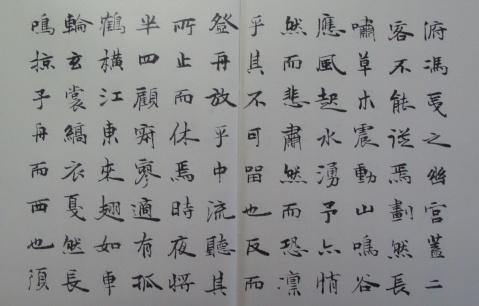 俯馮夷之幽宮蓋二
客不能從焉劃然長
嘯草木震動山鳴谷
應風起水湧予亦悄
然而悲肅然而恐凜
乎其不可留也反而
登舟放乎中流聽其
所止而休焉時夜將
半四顧寂寥適有孤
鶴橫江東來翅如車
輪玄裳縞衣戛然長
鳴掠予舟而西也須